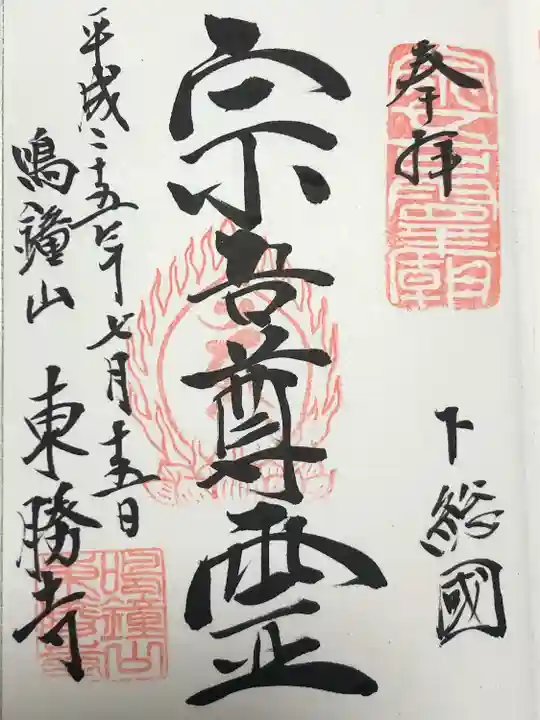 奉拝
下総國
宗吾尊霊
平成二十五年七月十五日
鳴鐘山
東勝寺
鳴鐘山
東勝寺